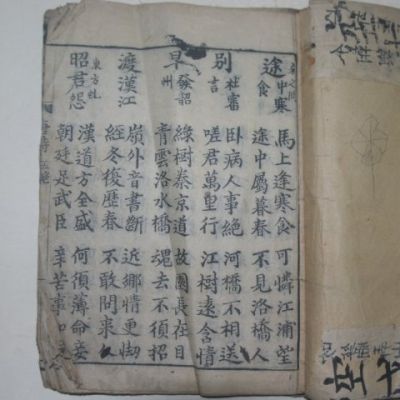 途中寒食
馬上逢寒食 可憐江浦望
途中屬暮春 不見洛橋人
別杜審言
卧病人事絶 河橋不相送
嗟君萬里行 江樹遠含情
早發韶州
綠樹秦京道 故園長在目
青雲洛水橋 魂去不須招
渡漢江
嶺外音書斷 近鄉情更怯
經冬復歷春 不敢問來
昭君怨 東方虬
漢道方全盛 何須薄命妾
朝廷足武臣 辛苦事和